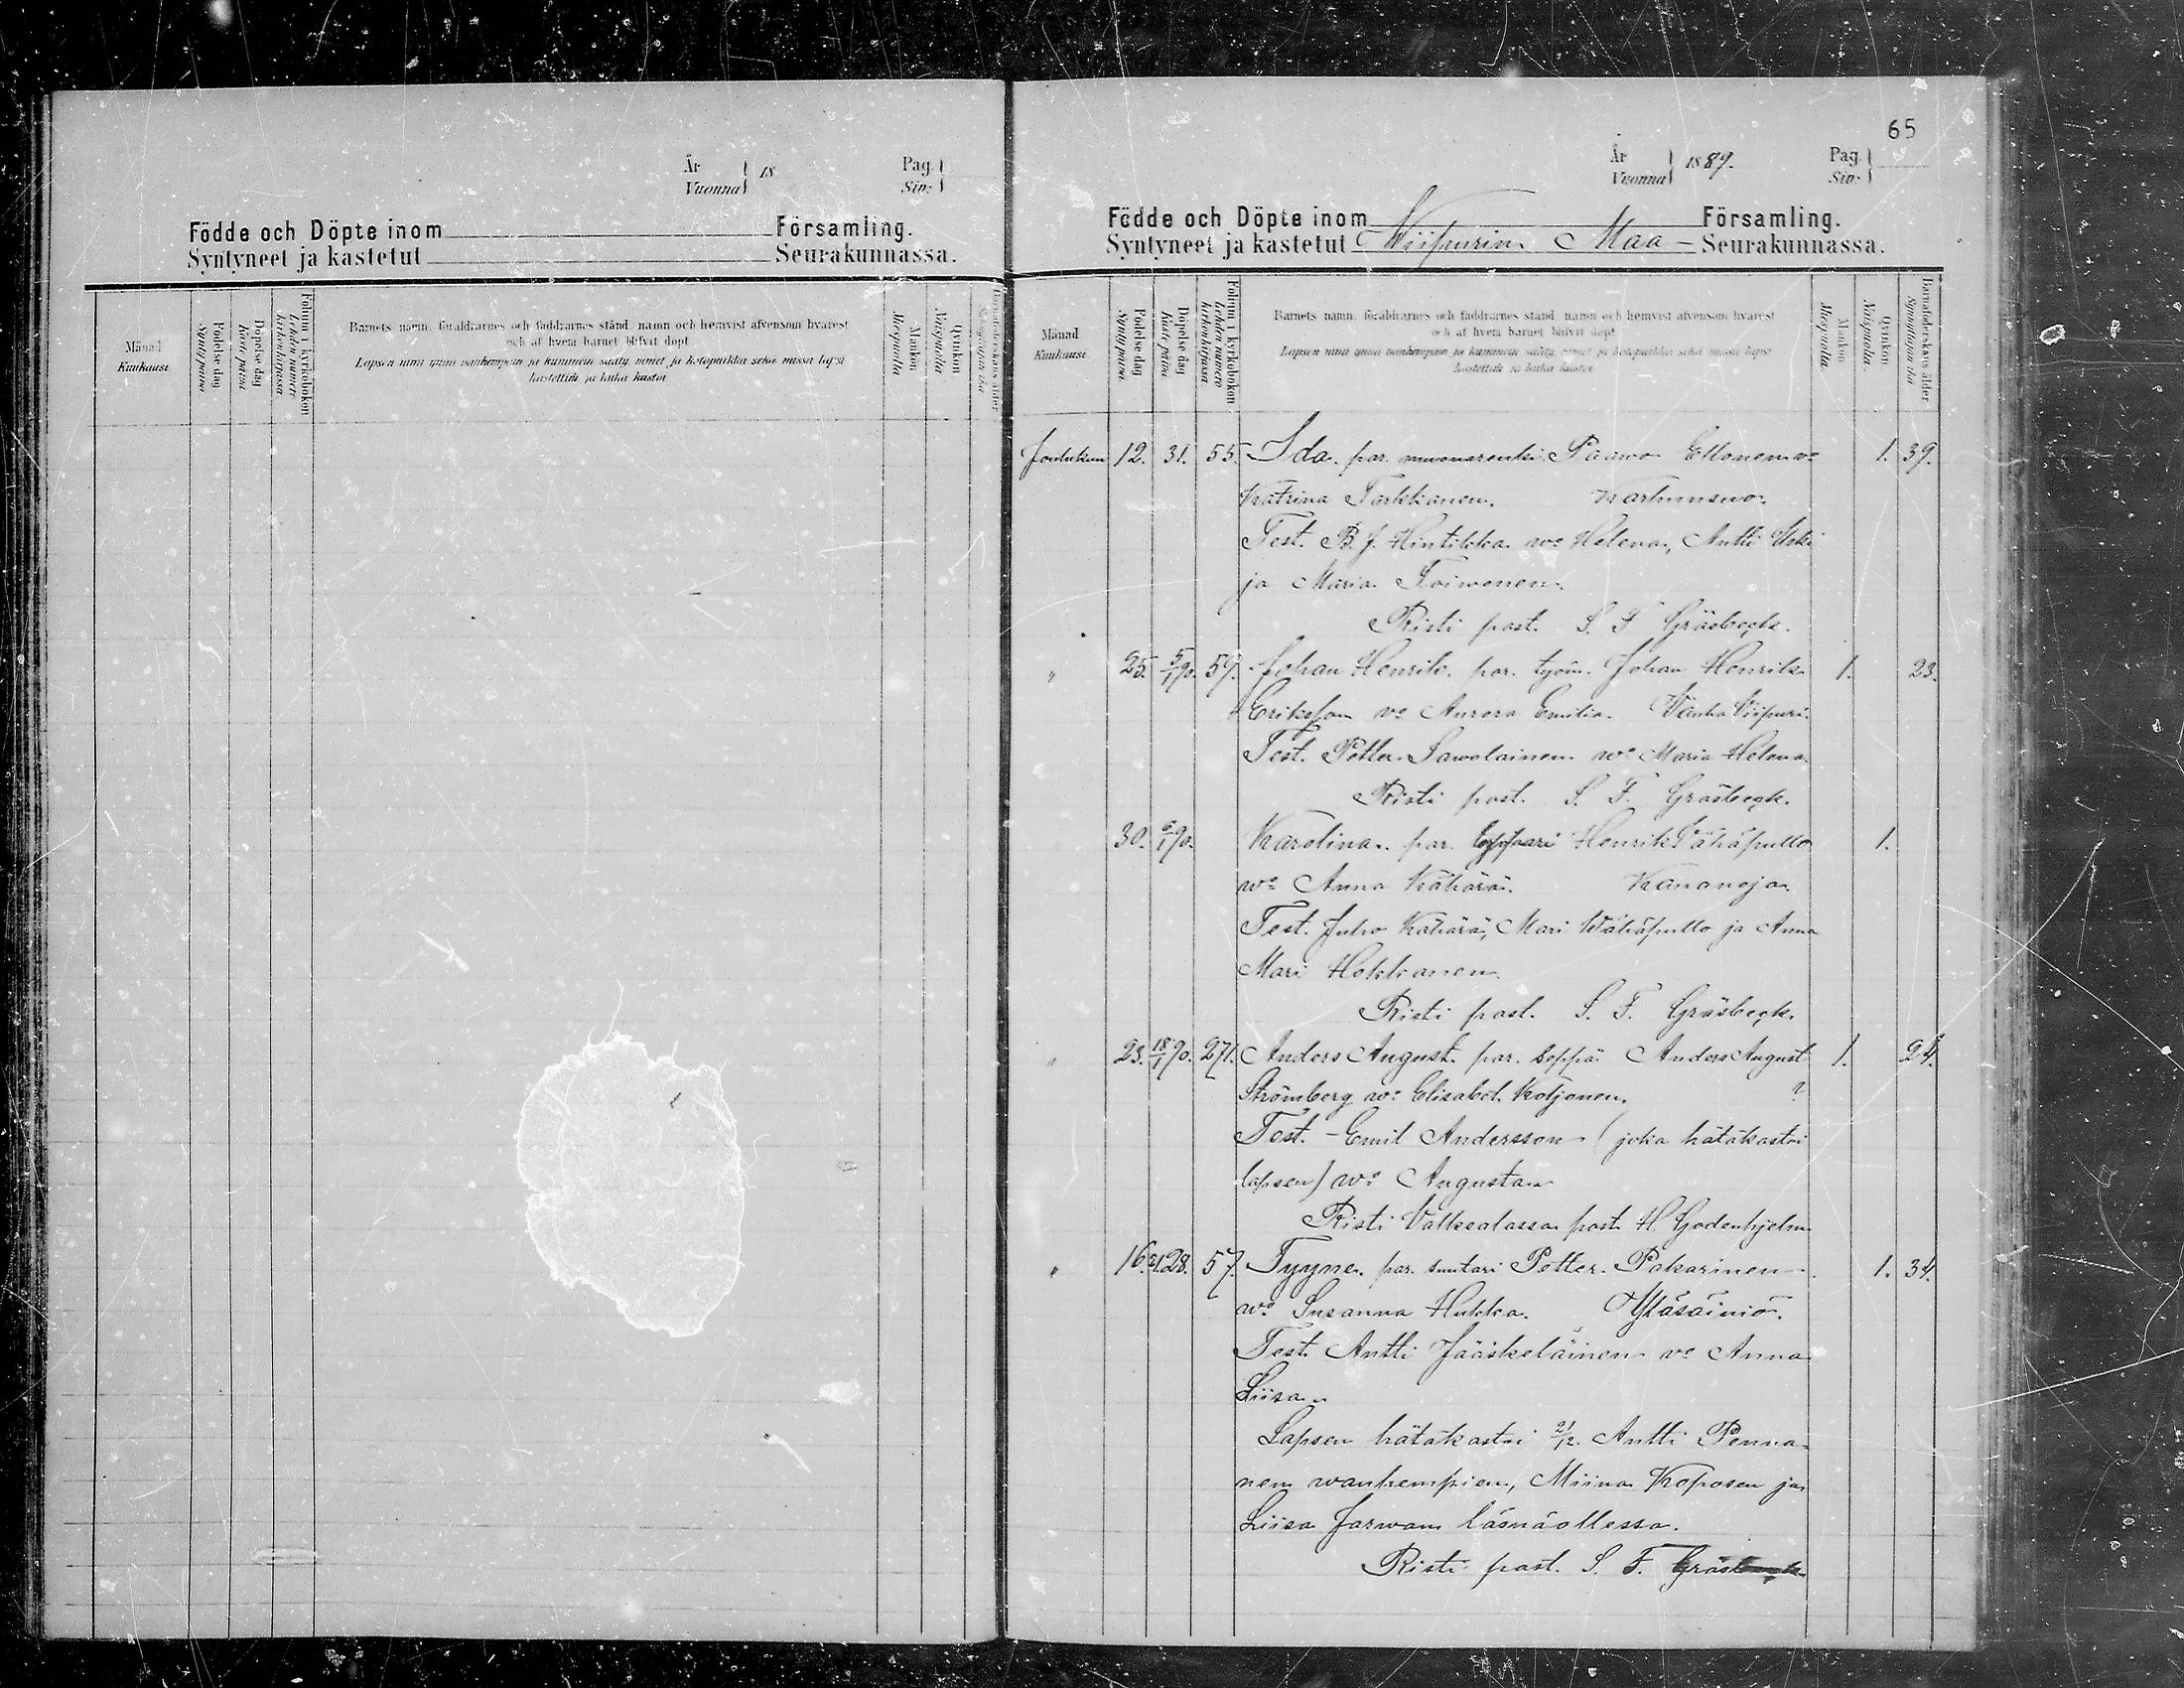 År
Vuonna
18
Pag.
Siv:
Födde och Döpte inom Församling.
Syntyneet ja kastetut Seurakunnassa.
Månad
Kuukausi
Födelse dag
Synty päivä
Döpelse dag
Kaste päivä
Folium i kyrkoboken
Lehden numero kirkonkirjassa
Barnets namn, föräldrarnes och faddrarnes stånd namn och hemvist äfvensom hvarest
och af hvem barnet blifvit döpt
Lapsen nimi ynnä vanhempain ja kummein sääty, nimet ja kotopaikka sekä missä lapsi
kastettiin ja kuka kastoi
Mankön
Miespuolta
Qvinkön
Naispuolta
65
År
Vuonna
1889.
Pag.
Siv:
Födde och Döpte inom Församling.
Syntyneet ja kastetut Wiipurin Maa- Seurakunnassa.
Månad
Kuukausi
Födelse dag
Synty päivä
Döpelse dag
Kaste päivä
Folium i kyrkoboken
Lehden numero kirkonkirjassa
Barnets namn, föräldrarnes och faddrarnes stånd namn och hemvist äfvensom hvarest
och af hvem barnet blifvit döpt
Lapsen nimi ynnä vanhempain ja kummein sääty, nimet ja kotopaikka sekä missä lapsi
kastettiin ja kuka kastoi
Mankön
Miespuolta
Qvinkön
Naispuolta
Barnaföderskans ålder
Synnyttäjän ikä
Joulukuu 12. 31. 55. Ida. par. Paawo Ellonen wo 1. 39.
Katrina Tarkkanen. Karhunsuo.
Test. B. J. Hintikka wo Helena, Antti Uski
ja Maria Toiwonen.
Risti past. S. F. Gräsbeck.
" 25. 5/1 90. 59. Johan Henrik. par. työm. Johan Henrik 1. 23.
Erikson vo Aurora Emilia. Vanha Viipuri.
Test. Petter Sawolainen wo Maria Helena
Risti past. S. F. Gräsbeck.
30. 6/1 90. Karolina. par. Henrik Vähäpullo 1.
wo Anna Kähärä. Kananoja.
Test. Juho Kähärä, Mari Wähäpullo ja Anna
Mari Hokkanen.
Risti past. S. F. Gräsbeck.
" 23. 18/1 90. 271. Anders August. par. seppä Anders August 1. 24.
Strömberg wo Elisabet Kotjonen. ?
Test. Emil Andersson (joka hätäkastoi
lapsen) wo Augusta
Risti Valkealassa past. H. Godenhjelm
" 16. 28. 57. Tyyne. par. suutari Petter Pakarinen 1. 34.
wo Susanna Hukka. Yläsäiniö.
Test. Antti Jääskeläinen vo Anna
Liisa.
Lapsen hätäkastoi 21/12. Antti Penna-
nen wanhempien, Miina Koposen ja
Liisa Jarwan läsnäollessa.
Risti past. S. F. Gräsbeck